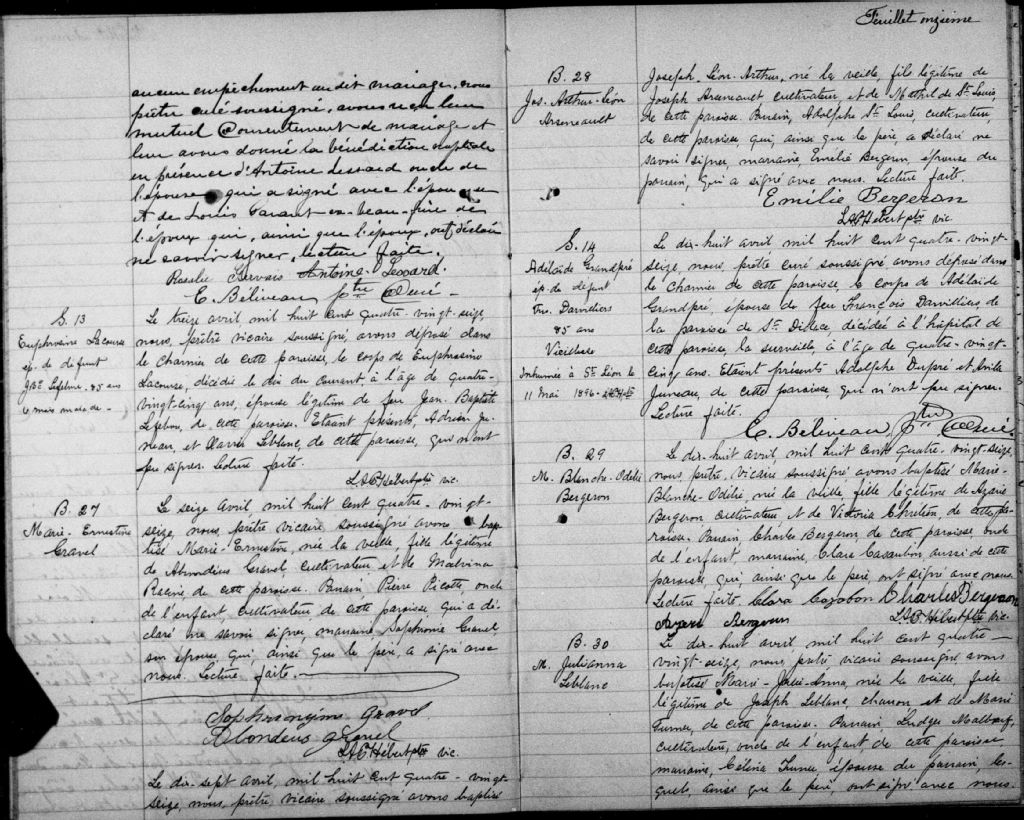 aucun empêchement au dit mariage, nous
prêtre curé soussigné, avons reçu leur
mutuel Consentement de mariage et
leur avons donné la bénédiction nuptiale
en présence d'Antoine Lessard oncle de
l'épouse qui a signé avec l'épouse
et de Louis beau-frère de
l'époux qui, ainsi que l'époux, ont déclaré
ne savoir signer, lecture faite.
Rosalie Gervais Antoine Lessard.
E. Béliveau ptre Curé
S. 13
Euphrosine Lacourse
ép. de defunt
Jbte Lefebvre. 85 ans
Le treize avril mil huit cent quatre-vingt-seize
nous, prêtre vicaire soussigné, avons déposé dans
le charnier de cette paroisse, le corps de Euphrosine
Lacourse, décédée le dix du courant à l'âge de quatre-
vingt-cinq ans, épouse légitime de feu Jean-Baptiste
Lefebvre, de cette paroisse. Etaient présents, Adrien Ju-
neau, et Leblanc, de cette paroisse, qui n'ont
pu signer. Lecture faite.
L.A.E. Hébert ptre vic.
B. 27
Marie-Ernestine
Gravel
Le seize avril, mil huit cent quatre-vingt-
seize, nous, prêtre vicaire soussigné avons bap-
tisé Marie-Ernestine, née la veille, fille légitime
de Gravel, cultivateur et de Malvina
Racine de cette paroisse. Parrain, Pierre Picotte, oncle
de l'enfant, cultivateur de cette paroisse qui a dé-
claré ne savoir signer, marraine Sophronie Gravel,
son épouse, qui, ainsi que le père, a signé avec
nous. Lecture faite.
Gravel
Gravel
L.A.E. Hébert ptre vic.
Le dix-sept avril, mil huit cent quatre-vingt-
seize, nous, prêtre, vicaire soussigné avons baptisé
Feuillet onzième
B. 28
Jos. Arthur-Léon
Arseneault
Joseph-Léon-Arthur, né la veille, fils légitime de
Joseph Arseneault cultivateur et de de St Louis
de cette paroisse. Parrain, Adolphe St Louis, cultivateur
de cette paroisse, qui, ainsi que le père, a déclaré ne
savoir signer, marraine, Emélie Bergeron, épouse du
parrain, qui a signé avec nous. Lecture faite.
Emélie Bergeron
L.A.E. Hébert ptre vic
S. 14
Adélaïde Grandpré
ép. de défunt
Frs. Darvilliers
85 ans
Vieillesse
Inhumée à St Léon le
11 Mai 1896
Le dix-huit avril mil huit cent quatre-vingt-
seize, nous, prêtre curé soussigné avons déposé dans
le charnier de cette paroisse, le corps de Adélaïde
Grandpré, épouse de feu François Darvilliers de
la paroisse de St Didace, décédée à l'hôpital de
cette paroisse, la surveille, à l'âge de quatre-vingt-
cinq ans. Etaient présents Adolphe Dupré et
Juneau, de cette paroisse, qui n'ont pu signer.
Lecture faite.
E. Béliveau, Ptre Curé
B. 29
M. Blanche-Odélie
Bergeron
Le dix-huit avril mil huit cent quatre-vingt-seize,
nous, prêtre, vicaire soussigné avons baptisé Marie-
Blanche-Odélie, née la veille, fille légitime de Azarie
Bergeron cultivateur et de Victoria Chrétien de cette pa-
roisse. Parrain, Charles Bergeron, de cette paroisse, oncle
de l'enfant, marraine, Clara Casaubon aussi de cette
paroisse qui, ainsi que le père, ont signé avec nous.
Lecture faite. Clara Cazobon Charles Bergeron
Azari Bergeron L.A.E. Hébert ptre vic.
B. 30
M. Julianna
Leblanc
Le dix-huit avril mil huit cent quatre-
vingt-seize, nous, prêtre vicaire soussigné avons
baptisé Marie-Julie-Anna, née la veille, fille
légitime de Joseph Leblanc, et de Marie
de cette paroisse. Parrain, Ludger Malboeuf,
cultivateur, oncle de l'enfant de cette paroisse
marraine, Célina épouse du parrain, les-
quels, ainsi que le père, ont signé avec nous.